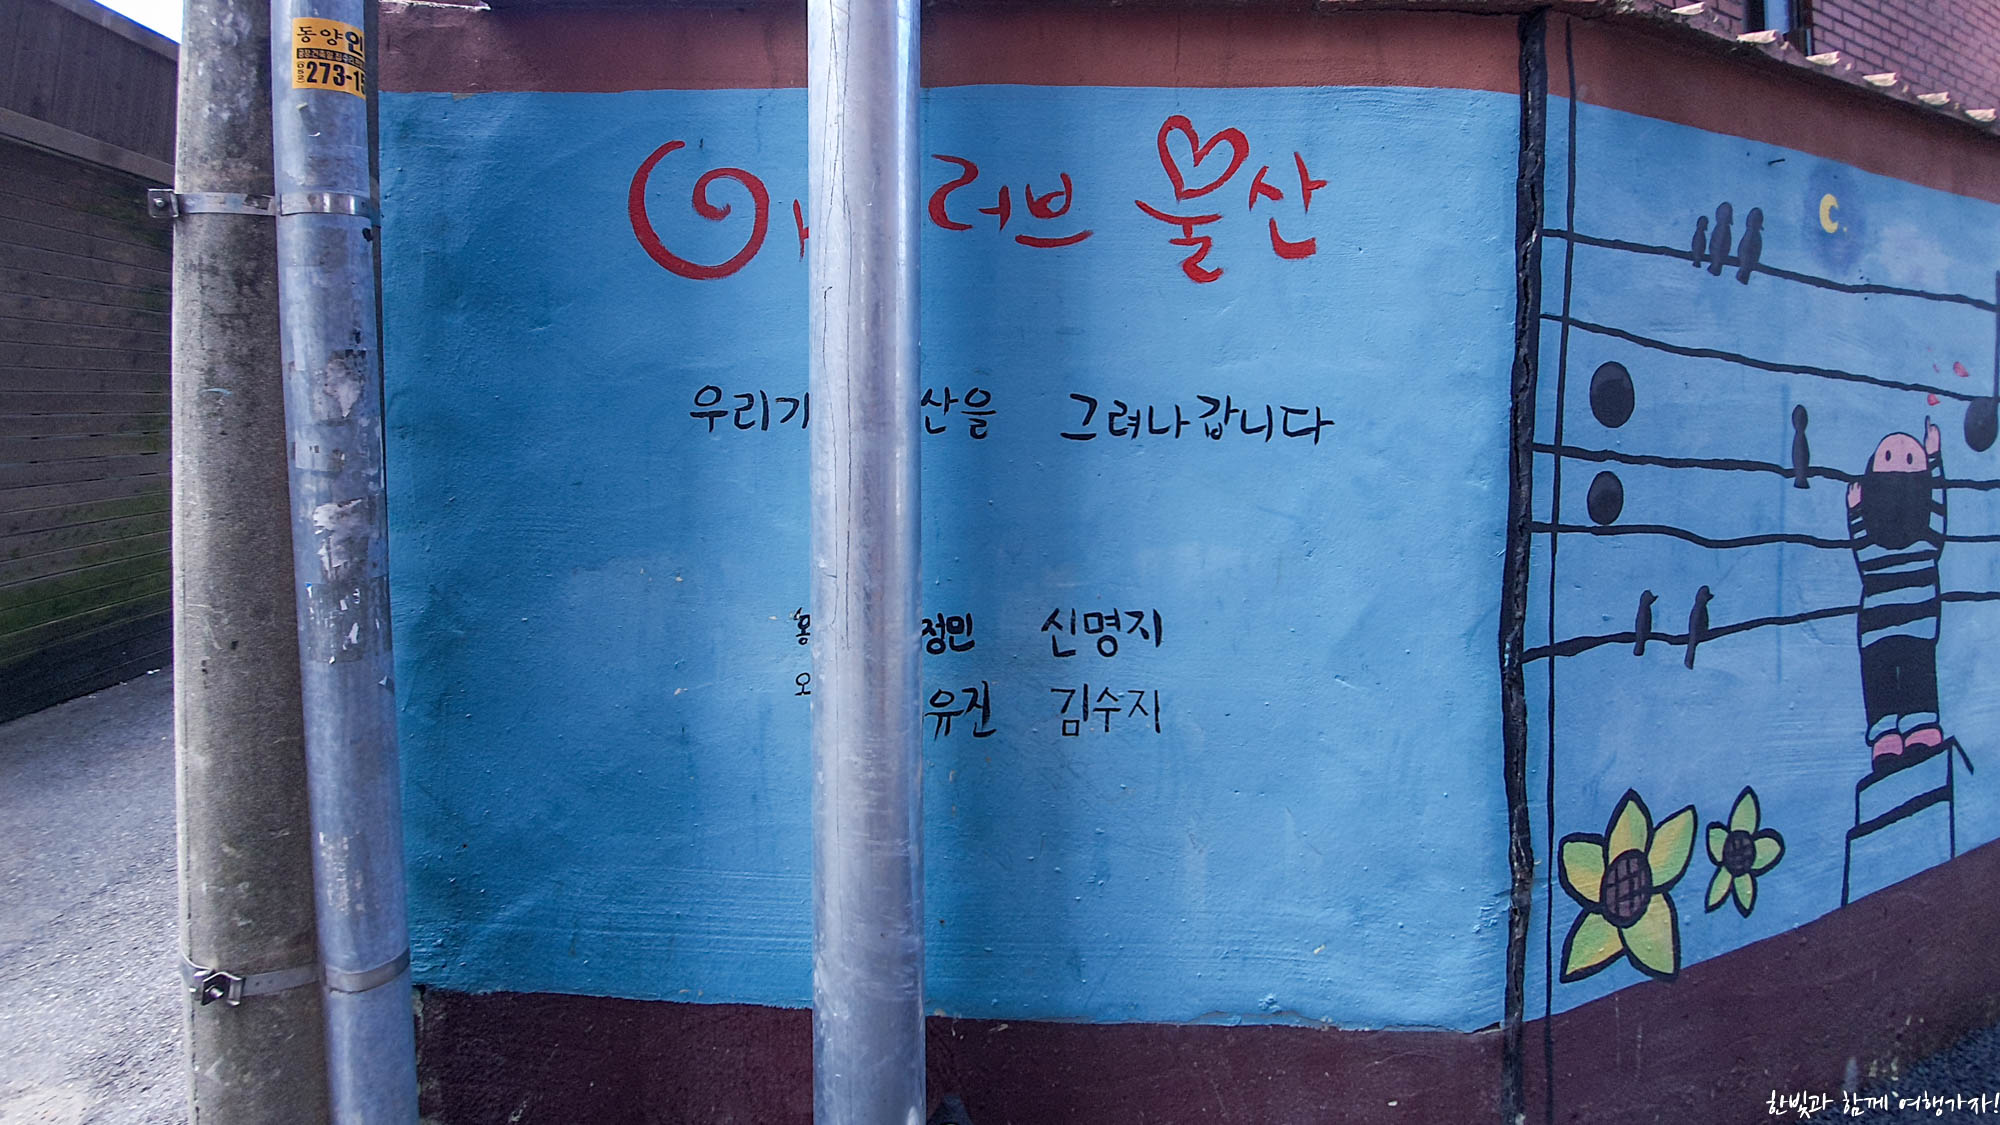 동양
273-15
러브 울산
우리 산을 그려나갑니다
정민 신명지
유진 김수지
한빛과 함께 여행가자!